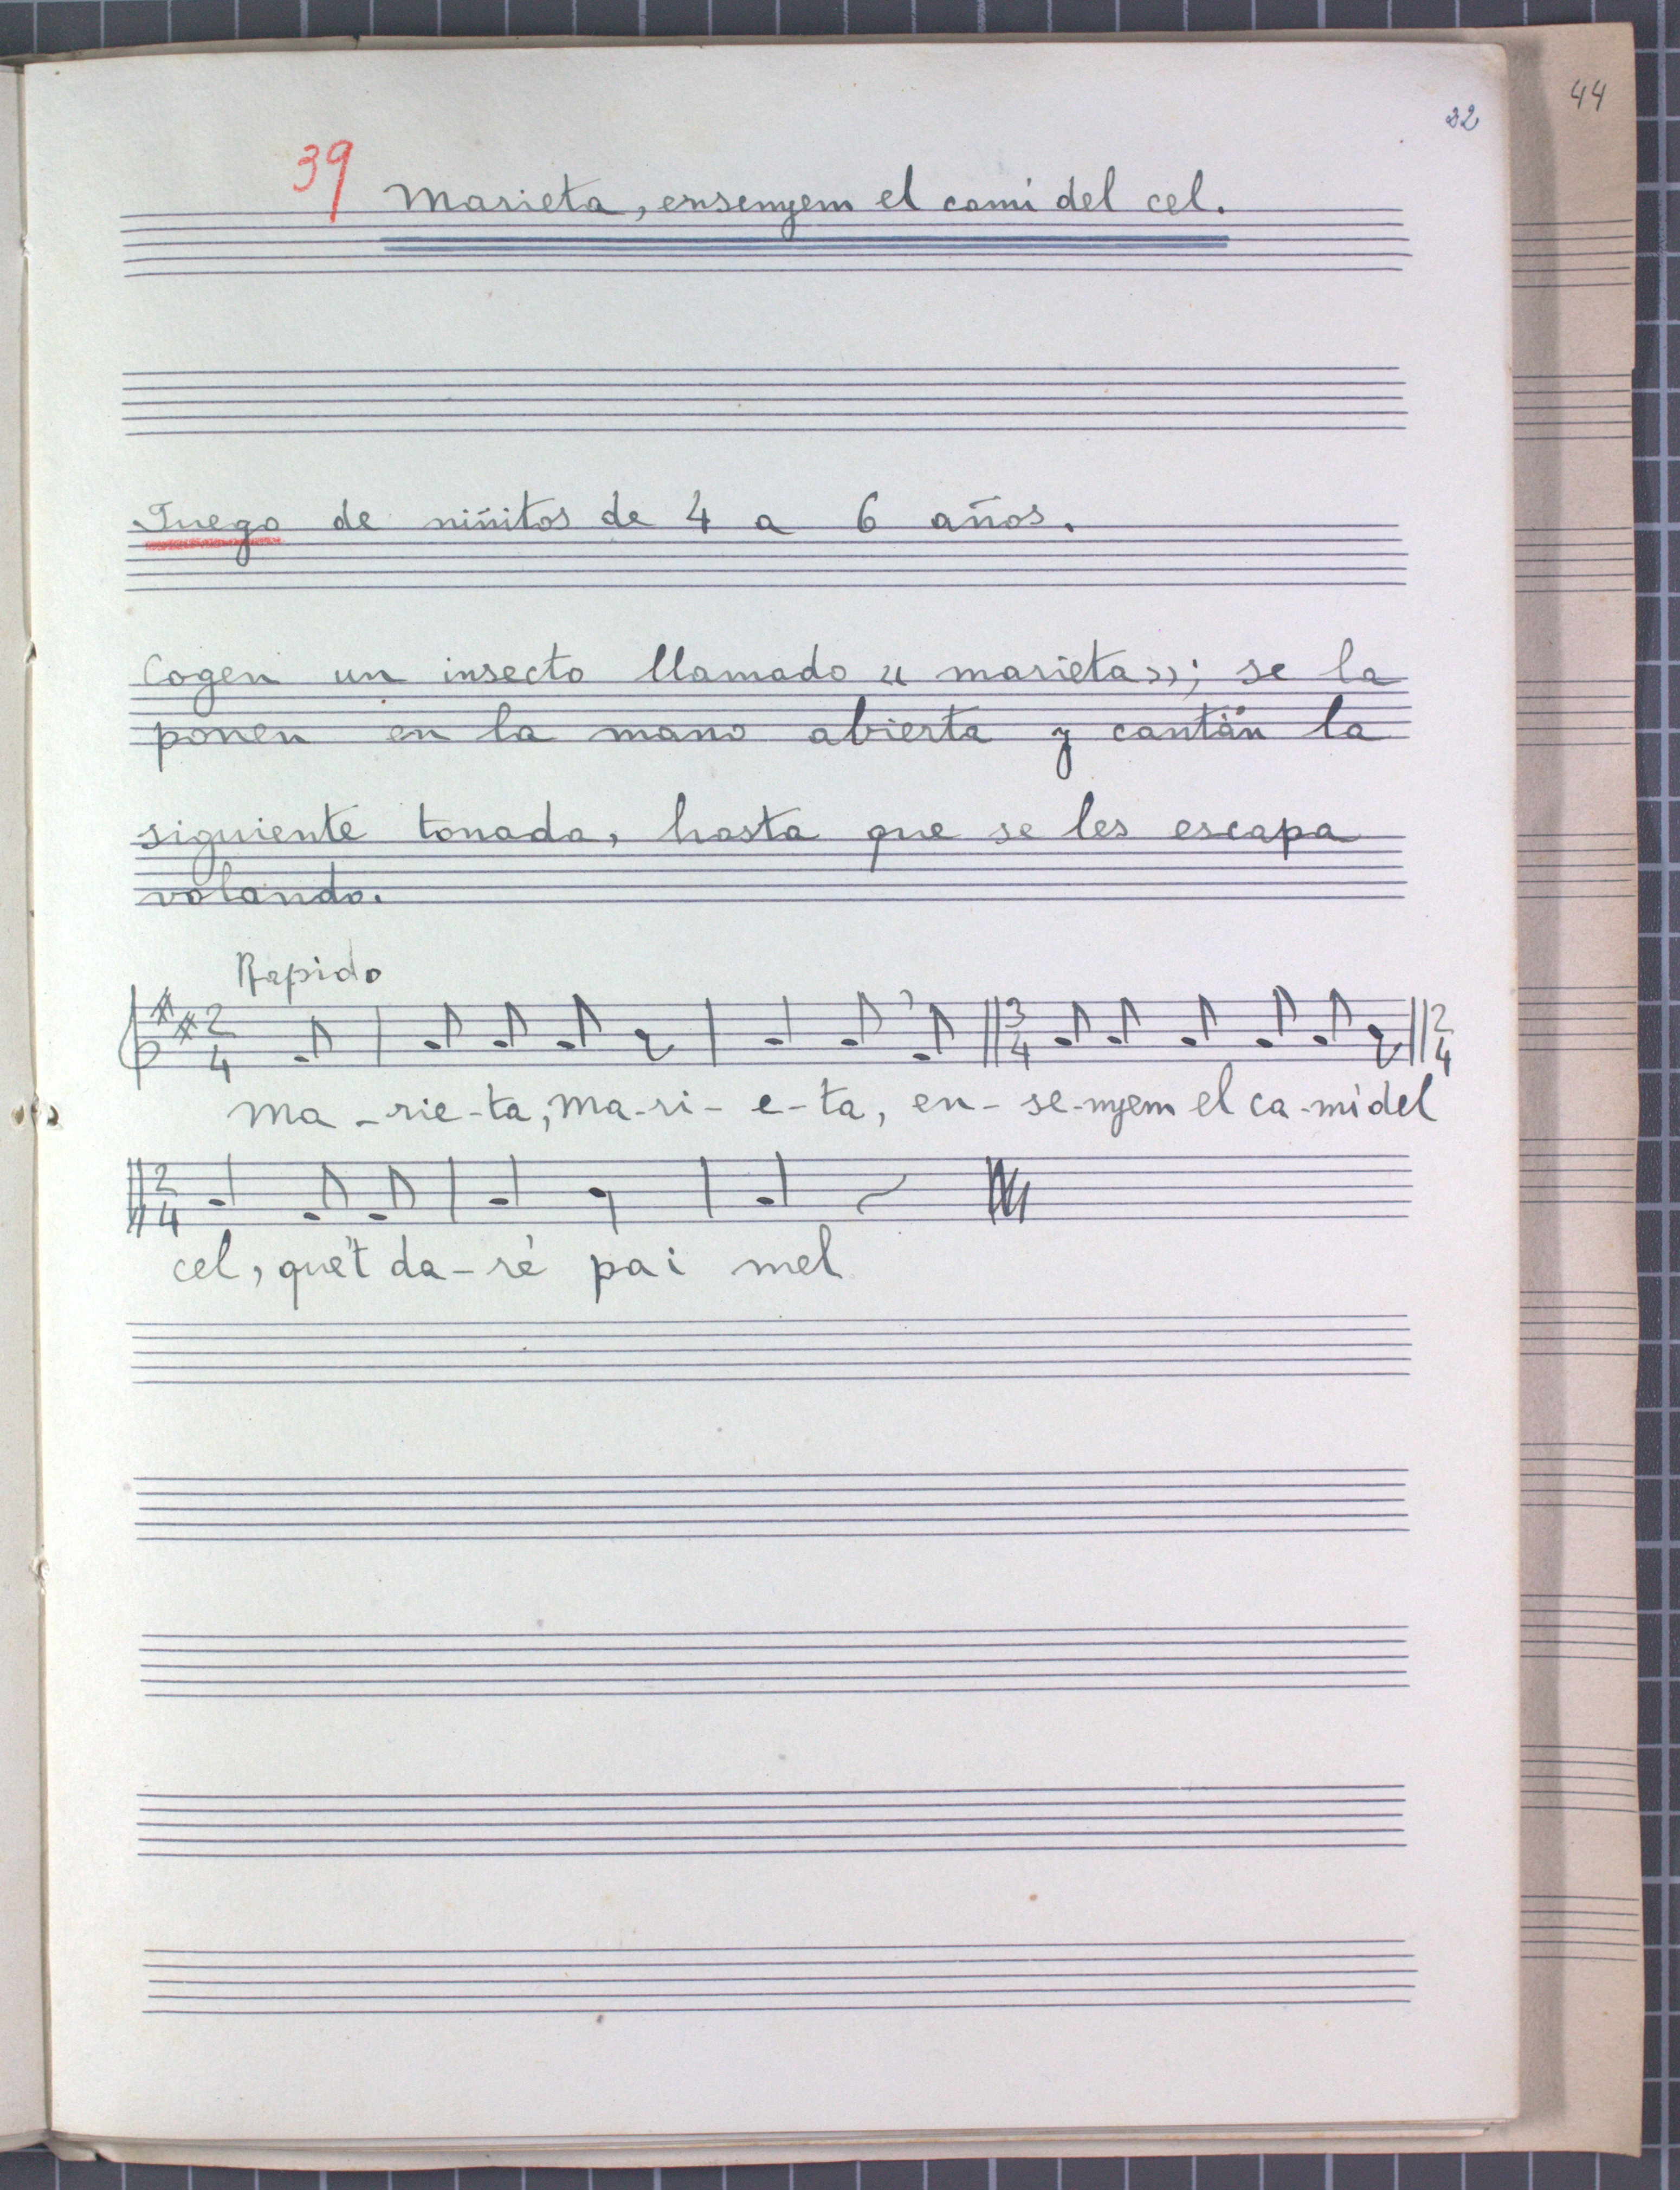 44
32
39
Marieta, ensenyem el camí del cel.
Juego de niñitos de 4 a 6 años.
Cogen un insecto llamado «marieta»; se la
ponen en la mano abierta y cantan la
siguiente tonada, hasta que se les escapa
volando.
Rapido
2/4 3/4 2/4
Ma-rie-ta, Ma-ri-e-ta, en-se-nyem el ca-mí del
2/4
cel, que't da-ré pa i mel